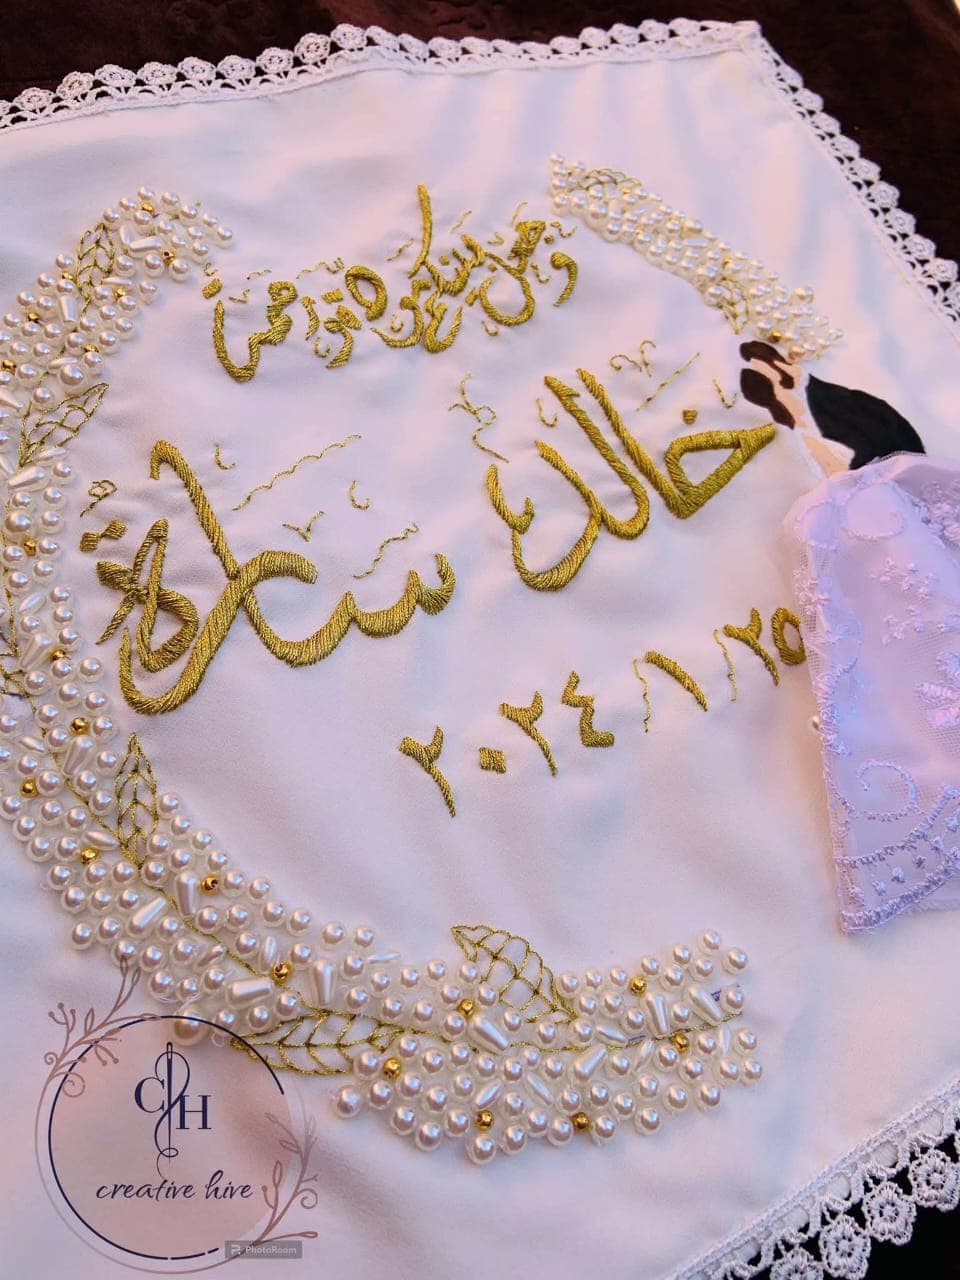 وجعل بينكم مودة ورحمة
خالد سارة
٢٠٢٤/١/٢٥
CH
creative hive
PhotoRoom